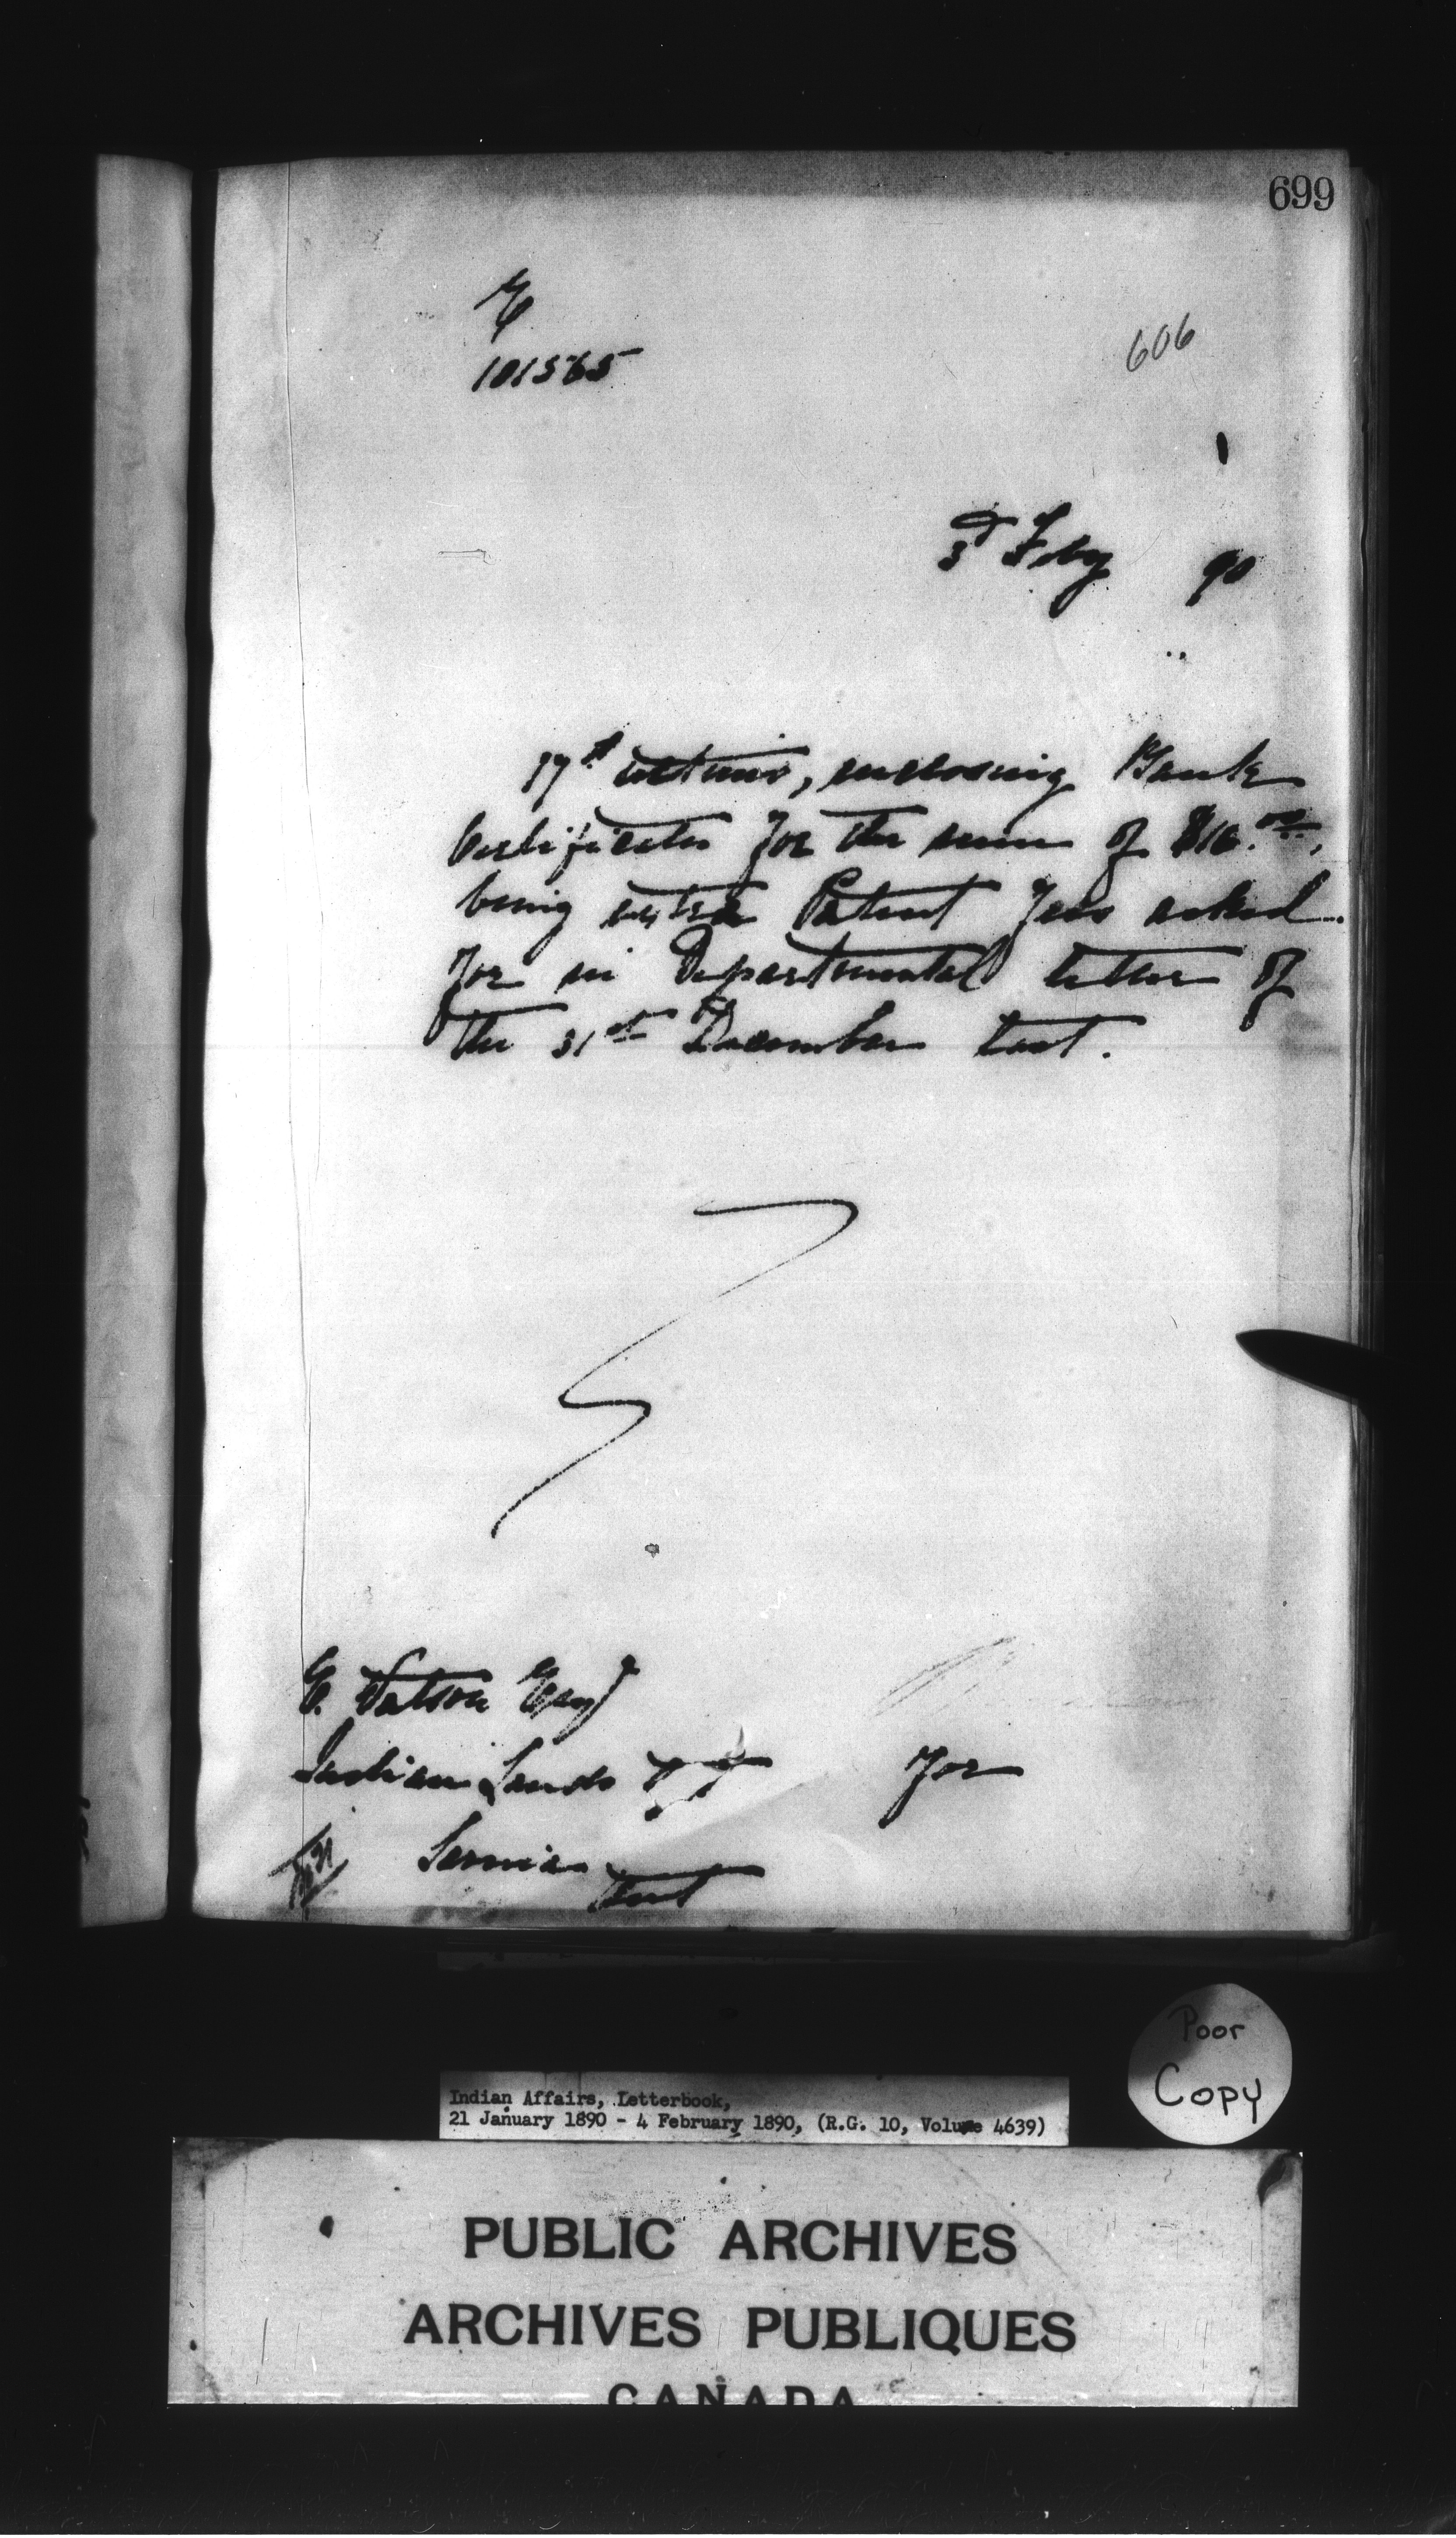 699
E
101565
606
3d Feby 90
17th ultimo, enclosing Bank
Certificates for the sum of $16.00,
being extra Patent fees asked
for in Departmental letter of
the 31st December last.
E. Watson Esqr
Indian Lands Agt
for
Sarnia
Ont
Poor
Copy
Indian Affairs, Letterbook,
21 January 1890 - 4 February 1890, (R.G. 10, Volume 4639)
PUBLIC ARCHIVES
ARCHIVES PUBLIQUES
CANADA